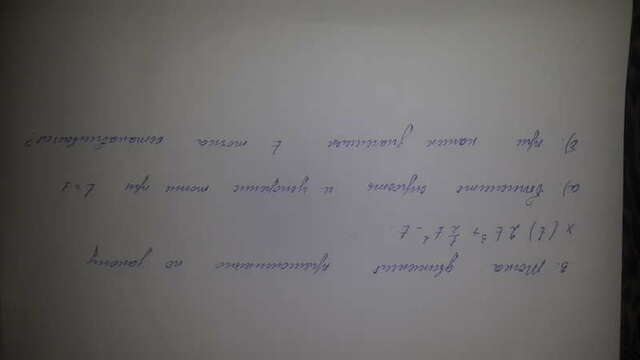 3. Точка движется прямолинейно по закону
x(t) 2t³ + ½ t² - t.
а) Вычислите скорость и ускорение точки при t = 1
б). при каких значениях t точка останавливается?